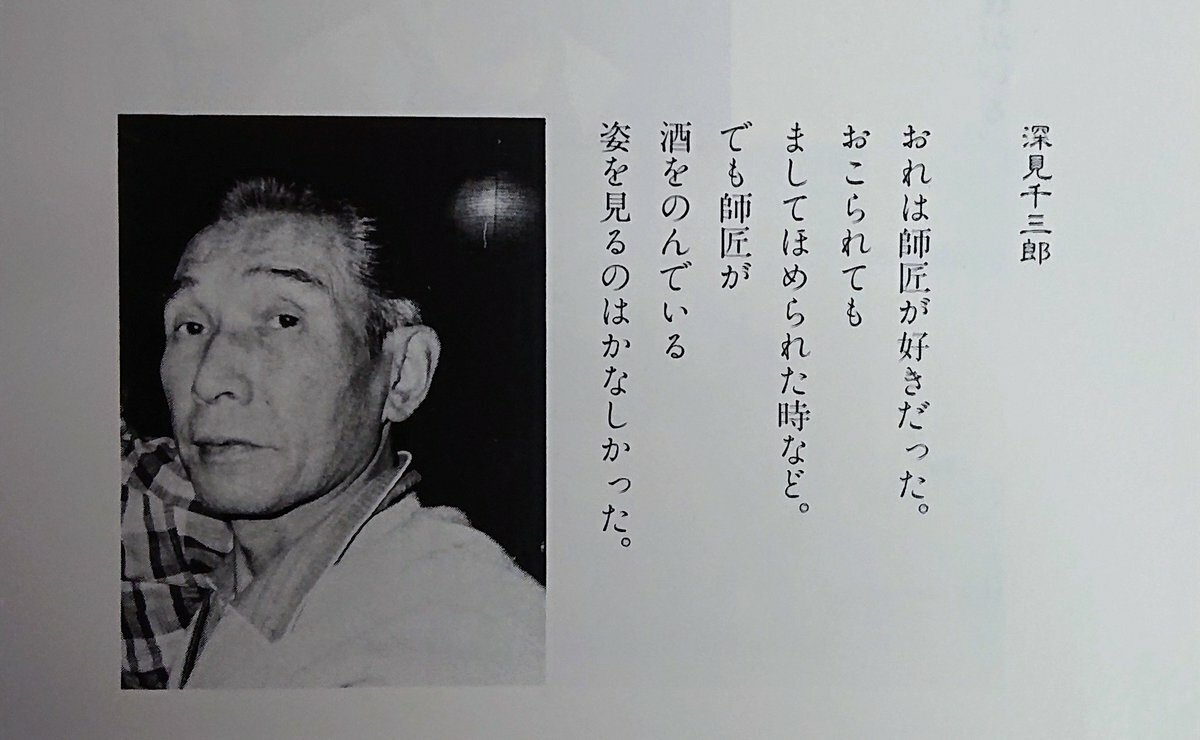 深見千三郎
おれは師匠が好きだった。
おこられても
ましてほめられた時など。
でも師匠が
酒をのんでいる
姿を見るのはかなしかった。